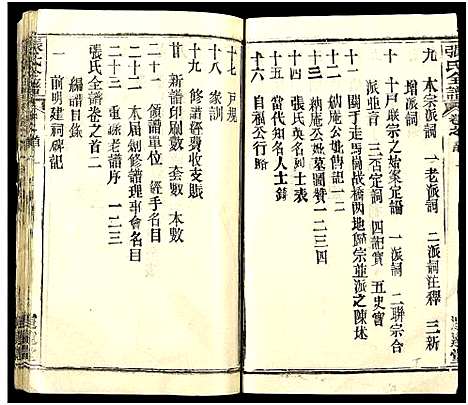 張氏全譜
九 本宗派詞 一老派詞 二派詞注釋 三新
增派詞
十 十戶联宗之始案定論 一派詞 二联宗合
派並言 三否定詞 四記實 五史實
十一 関于走馬崗战橋两地歸宗並派之陳述
十二 納庵公妣傳記 一二
十三 納庵公妣墓圖贊 一二三四
十四 歷代名人列士表
十五 當代知名人士錄
十六 自福公行略
十七 戶規
十八 家訓
十九 修譜經費收支賬
廿 新譜印刷數 套數 本數
二十一 領譜單位 經手名目
二十二 本届剏修譜理事會名目
二十三 重錄老譜序 一二三
張氏全譜卷之首二
編譜目錄
一 前明建祠碑記
張氏全譜